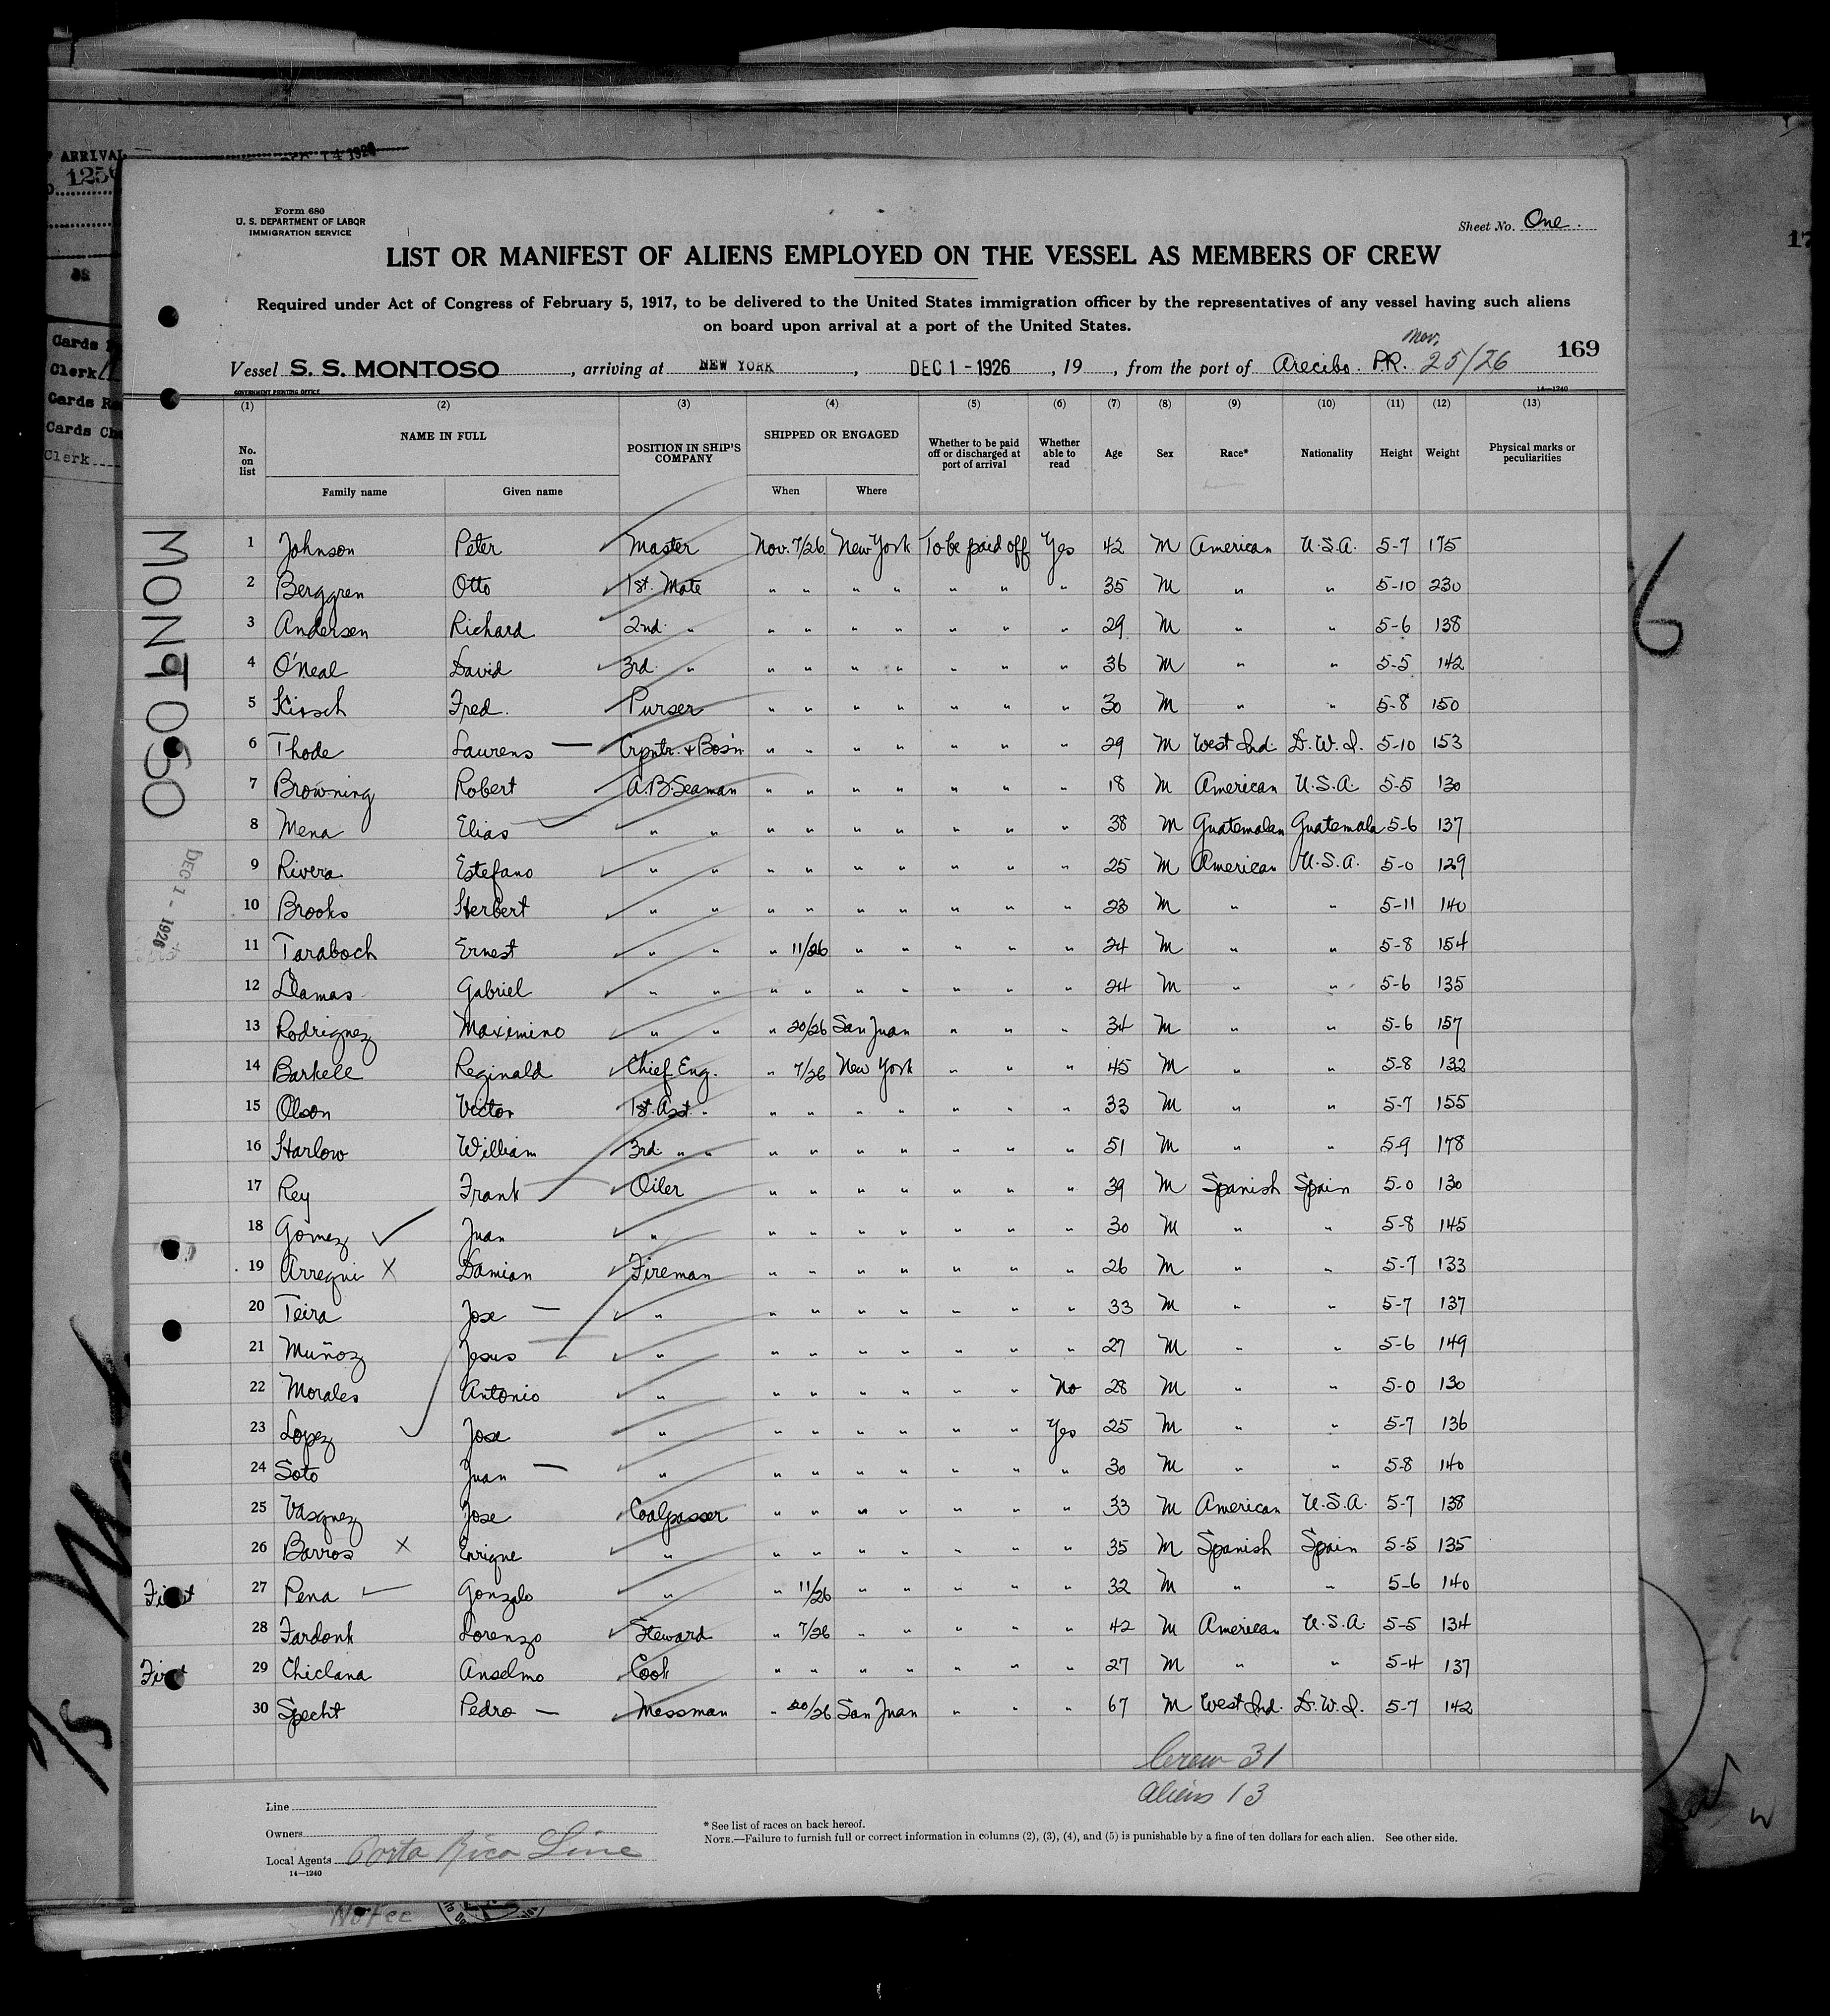 ARRIVAL
125
Cards
Clerk
Cards Re
Cards Ch
Clerk
Form 680
U. S. DEPARTMENT OF LABOR
IMMIGRATION SERVICE
Sheet No. One.
LIST OR MANIFEST OF ALIENS EMPLOYED ON THE VESSEL AS MEMBERS OF CREW
Required under Act of Congress of February 5, 1917, to be delivered to the United States immigration officer by the representatives of any vessel having such aliens
on board upon arrival at a port of the United States.
169
Vessel S. S. MONTOSO, arriving at NEW YORK, DEC 1 - 1926, 19, from the port of Arecibo. P.R. Nov. 25/26
GOVERNMENT PRINTING OFFICE
14—1240
(1) (2) (3) (4) (5) (6) (7) (8) (9) (10) (11) (12) (13)
No. on list NAME IN FULL Family name Given name POSITION IN SHIP'S COMPANY SHIPPED OR ENGAGED When Where Whether to be paid off or discharged at port of arrival Whether able to read Age Sex Race* Nationality Height Weight Physical marks or peculiarities
MONTOSO
DEC 1 - 1926
1 Johnson Peter Master Nov. 7/26 New York To be paid off Yes 42 M American U.S.A. 5-7 175
2 Berggren Otto 1st. Mate " " " " " " " 35 M " " 5-10 230
3 Andersen Richard 2nd. " " " " " " " " 29 M " " 5-6 138
4 O'Neal David 3rd. " " " " " " " " 36 M " " 5-5 142
5 Kirsch Fred. Purser " " " " " " " 30 M " " 5-8 150
6 Thode Laurens — Crpntr. + Bos'n " " " " " " " 29 M West Ind. D.W.I. 5-10 153
7 Browning Robert A.B. Seaman " " " " " " " 18 M American U.S.A. 5-5 130
8 Mena Elias " " " " " " " " " 38 M Guatemalan Guatemala 5-6 137
9 Rivera Estefano " " " " " " " " " 25 M American U.S.A. 5-0 129
10 Brooks Herbert " " " " " " " " " 23 M " " 5-11 140
11 Taraboch Ernest " " " 11/26 " " " " " 24 M " " 5-8 154
12 Llamas Gabriel " " " " " " " " " 24 M " " 5-6 135
13 Rodriguez Maximino " " " 20/26 San Juan " " " 34 M " " 5-6 157
14 Barkell Reginald Chief Eng. " 7/26 New York " " " 45 M " " 5-8 132
15 Olson Victor 1st. Asst. " " " " " " " " 33 M " " 5-7 155
16 Harlow William 3rd " " " " " " " " " 51 M " " 5-9 178
17 Rey Frank Oiler " " " " " " " 39 M Spanish Spain 5-0 130
18 Gomez ✓ Juan " " " " " " " " 30 M " " 5-8 145
19 Arregui X Damian Fireman " " " " " " " 26 M " " 5-7 133
20 Teira Jose — " " " " " " " " 33 M " " 5-7 137
21 Muñoz Jesus " " " " " " " " 27 M " " 5-6 149
22 Morales Antonio " " " " " " " No 28 M " " 5-0 130
23 Lopez ✓ Jose " " " " " " " Yes 25 M " " 5-7 136
24 Soto Juan — " " " " " " " " 30 M " " 5-8 140
25 Vasquez Jose Coalpasser " " " " " " " 33 M American U.S.A. 5-7 138
26 Barros X Enrique " " " " " " " " 35 M Spanish Spain 5-5 135
First 27 Pena ✓ Gonzalo " " 11/26 " " " " " 32 M " " 5-6 140
28 Fardonk Lorenzo Steward " 7/26 " " " " " 42 M American U.S.A. 5-5 134
First 29 Chiclana Anselmo Cook " " " " " " " 27 M " " 5-4 137
30 Specht Pedro — Messman " 20/26 San Juan " " " 67 M West Ind. D.W.I. 5-7 142
Crew 31
Aliens 13
Line
Owners
Local Agents Porto Rico Line
14—1240
* See list of races on back hereof.
NOTE.—Failure to furnish full or correct information in columns (2), (3), (4), and (5) is punishable by a fine of ten dollars for each alien. See other side.